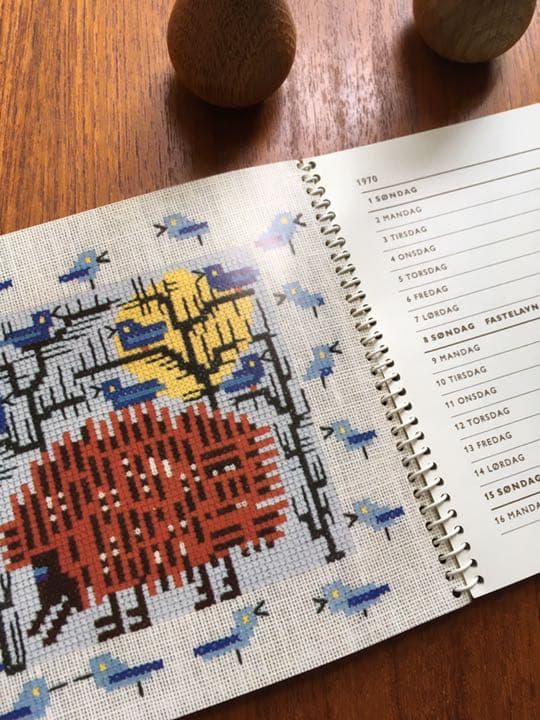 1970
1 SØNDAG
2 MANDAG
3 TIRSDAG
4 ONSDAG
5 TORSDAG
6 FREDAG
7 LØRDAG
8 SØNDAG FASTELAVN
9 MANDAG
10 TIRSDAG
11 ONSDAG
12 TORSDAG
13 FREDAG
14 LØRDAG
15 SØNDAG
16 MANDA